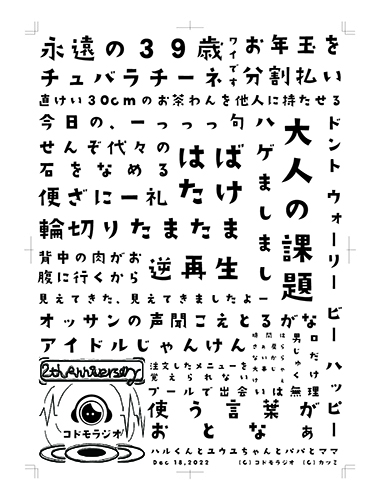 永遠の39歳
ワイです
お年玉を
チュバラチーネ
分割払い
直けい30cmのお茶わんを他人に持たせる
今日の、一っっっ句
ハゲましまし
大人の課題
ドント ウォーリー ビー ハッピー
せんぞ代々の
石をなめる
はたけ
ばけ
便ざに一礼
輪切りたまたま
背中の肉がお
腹に行くから
逆再生
見えてきた、見えてきましたよー
オッサンの声聞こえとるがな
アイドルじゃんけん
男じゅく
ロだけ
2th Anniversary
コドモラジオ
注文したメニューを
覚えられない
プールで出会いは無理
使う言葉が
おとなぁ
ハルくんとユウユちゃんとパパとママ
Dec 18,2022
(C)コドモラジオ (C)カツミ